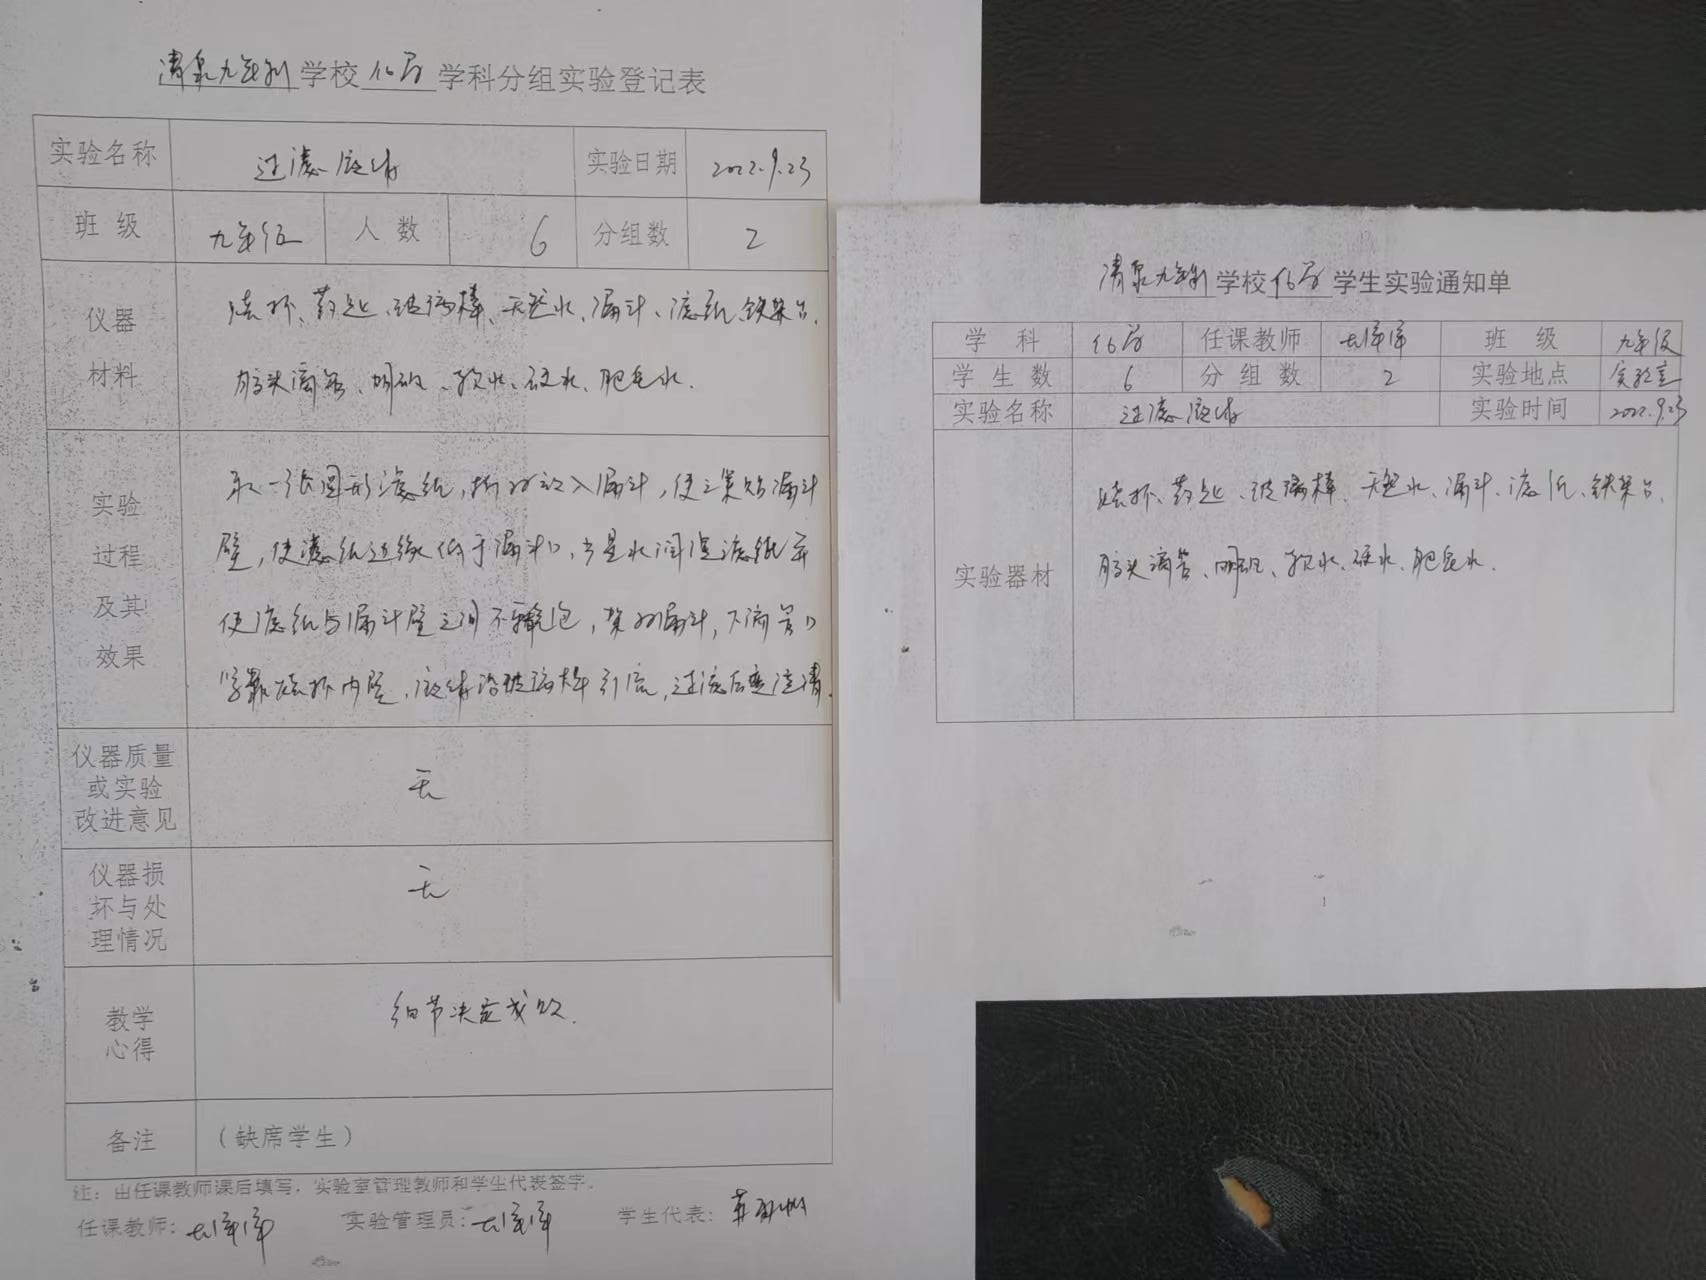 清泉九年制学校化学学科分组实验登记表
实验名称 过滤液体 实验日期 2022.9.23
班级 九年级 人数 6 分组数 2
仪器材料
烧杯、药匙、玻璃棒、天然水、漏斗、滤纸、铁架台、
胶头滴管、明矾、软水、硬水、肥皂水.
实验过程及其效果
取一张圆形滤纸,折好放入漏斗,使之紧贴漏斗
壁,使滤纸边缘低于漏斗口,少量水润湿滤纸并
使滤纸与漏斗壁之间不要有气泡,架好漏斗,下端管口
紧靠烧杯内壁,液体沿玻璃棒引流,过滤后变澄清.
仪器质量或实验改进意见
无
仪器损坏与处理情况
无
教学心得
细节决定成败.
备注 (缺席学生)
注:由任课教师课后填写,实验室管理教师和学生代表签字。
任课教师: 实验管理员: 学生代表:
清泉九年制学校化学学生实验通知单
学科 化学 任课教师 班级 九年级
学生数 6 分组数 2 实验地点 实验室
实验名称 过滤液体 实验时间 2022.9.23
实验器材
烧杯、药匙、玻璃棒、天然水、漏斗、滤纸、铁架台、
胶头滴管、明矾、软水、硬水、肥皂水.